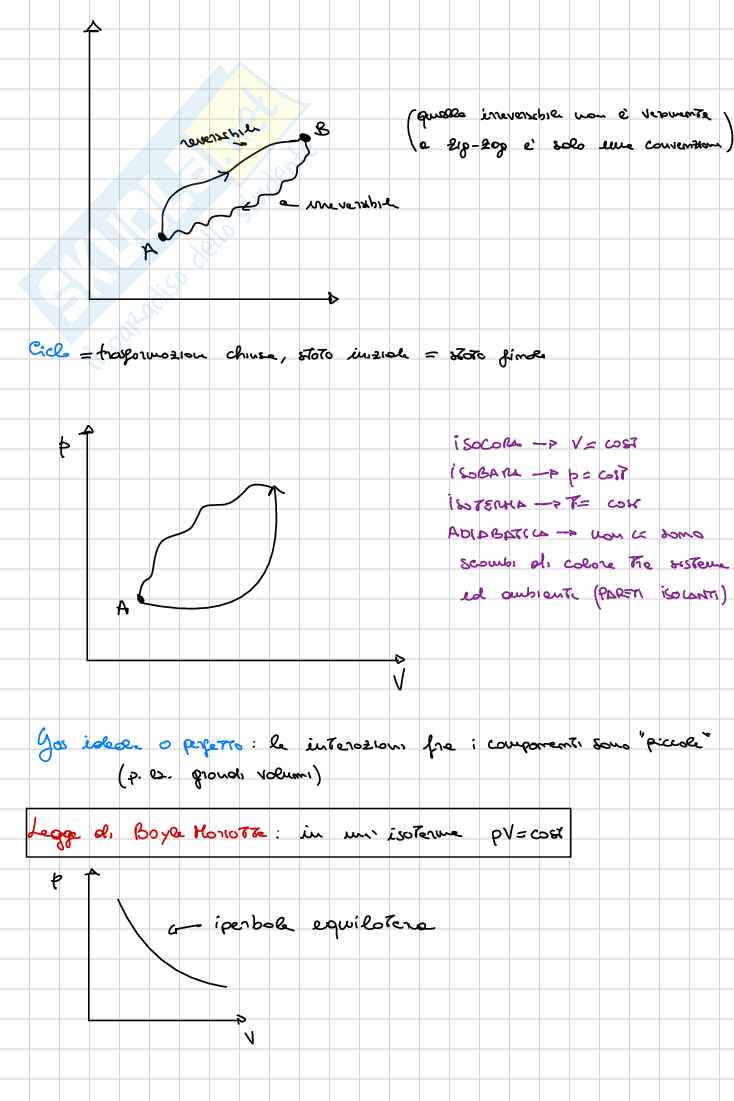 SKUOLA.net
il paradiso dello studente
reversibile
B
A
irreversibile
(quella irreversibile non è veramente
a zig-zag è solo una convenzione)
Ciclo = trasformazione chiusa, stato iniziale = stato finale
p
A
V
ISOCORA → V = cost
ISOBARA → p = cost
ISOTERMA → T = cost
ADIABATICA → non ci sono
scambi di calore tra sistema
ed ambiente (PARETI ISOLANTI)
Gas ideale o perfetto: le interazioni fra i componenti sono "piccole"
(p. es. grandi volumi)
Legge di Boyle Mariotte: in un' isoterma pV = cost
p
iperbole equilatera
V